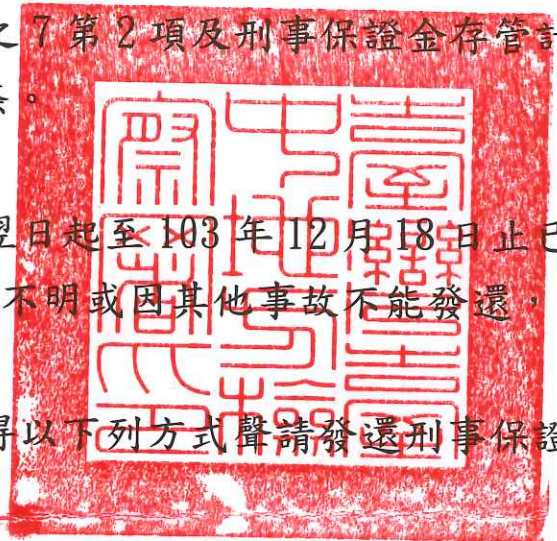 之7第2項及刑事保證金存管計
條。
翌日起至103年12月18日止已
不明或因其他事故不能發還,
得以下列方式聲請發還刑事保證
臺灣臺
中地方檢
察署印